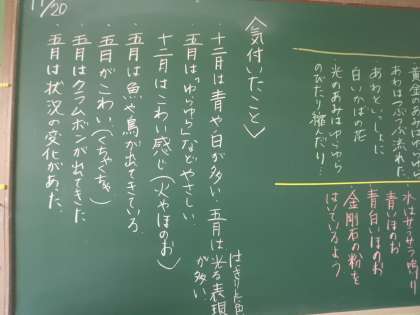 11/20
黄金のあみはゆらゆら
あわはつぶつぶ流れた
あわといっしょに
白いかばの花
光のあみはゆらゆら
のびたり縮んだり…
氷はサラサラ鳴り
青いほのお
青白いほのお
金剛石の粉を
はいているよう
〈気付いたこと〉
・十二月は青や白が多い。五月は光る表現が多い。
はっきりした色
五月は「ゆらゆら」などやさしい
十二月はこわい感じ(火やほのお)
・五月は魚や鳥が出てきている。
・五月がこわい(くちゃくちゃ)
・五月はクラムボンが出てきた
・五月は状況の変化があった。